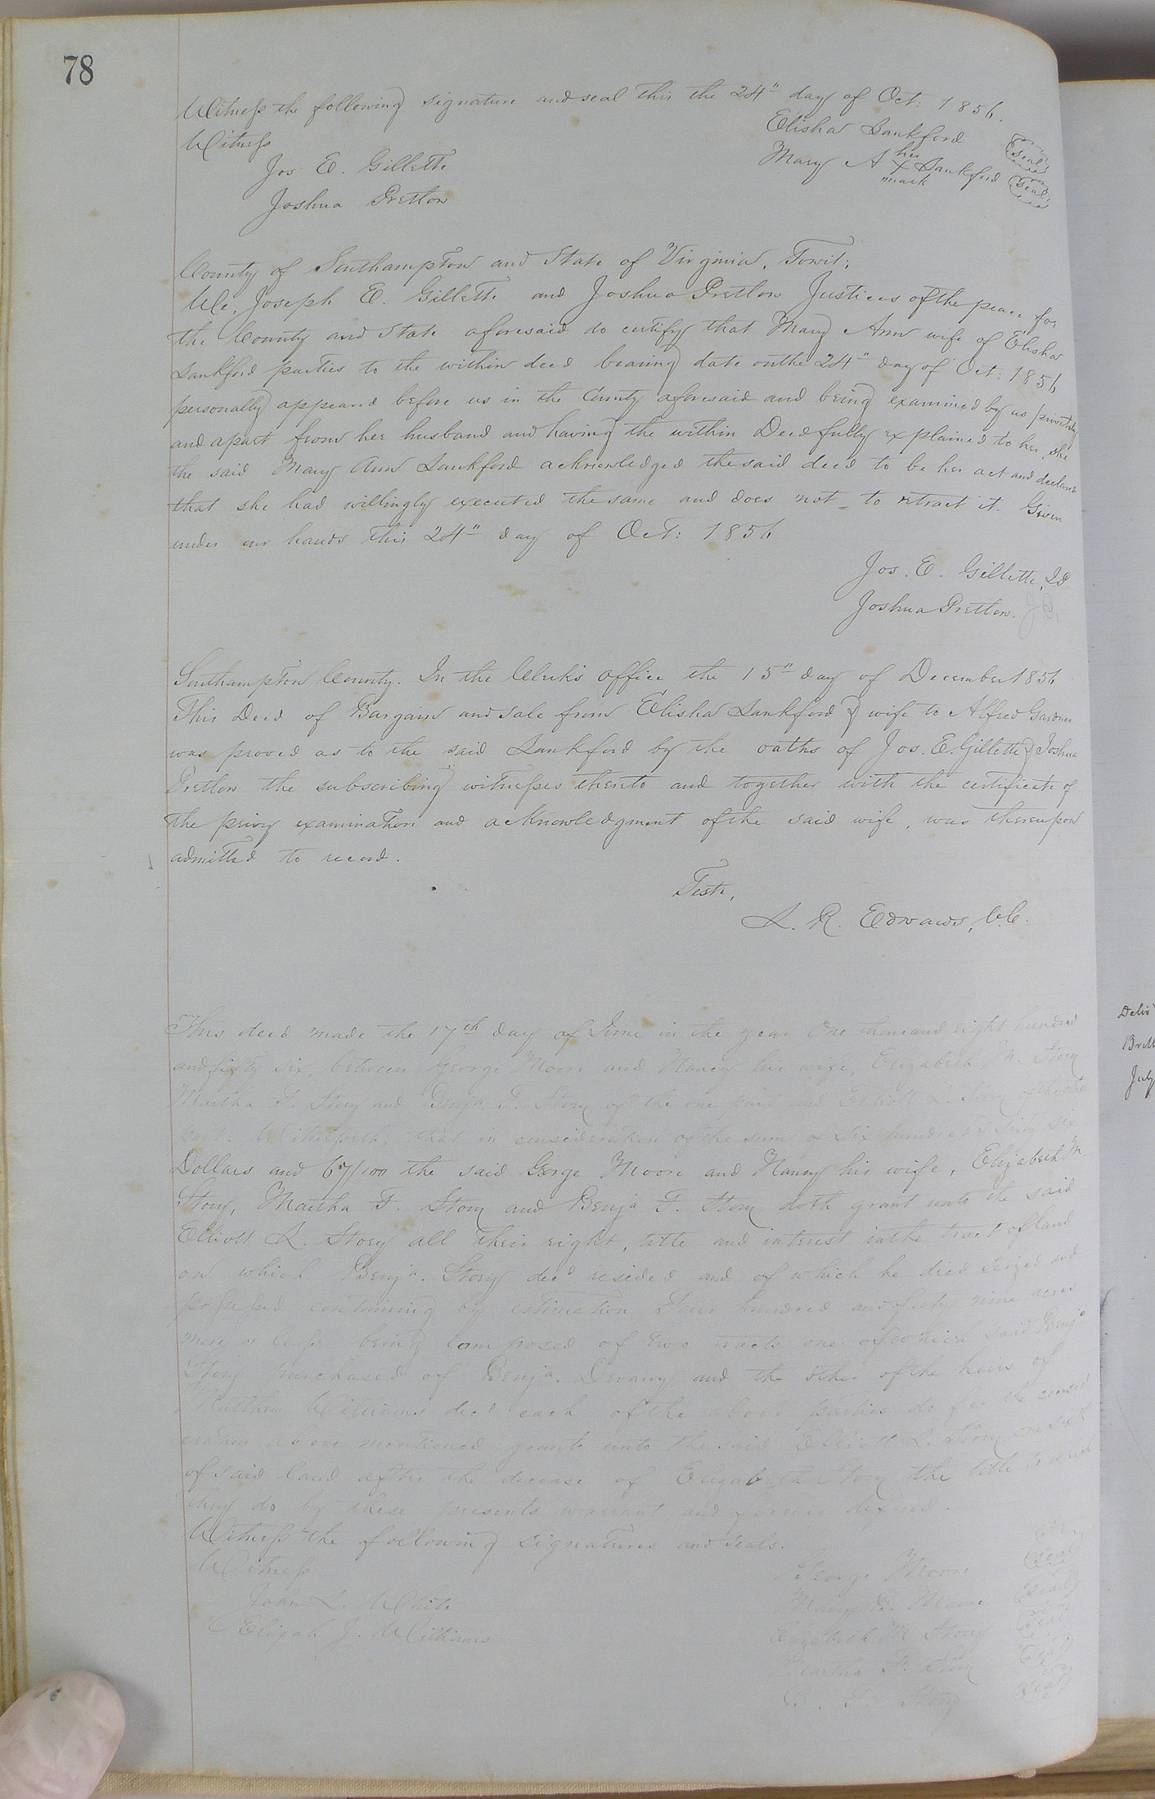 78
Witness the following signature and seal this the 24" day of Oct: 1856.
Witness
Elisha Lankford seal
Jos. E. Gillette
Mary A her X mark Lankford seal
Joshua Pretlow
County of Southampton and State of Virginia, Towit:
We, Joseph E. Gillette and Joshua Pretlow Justices of the peace for
the County and State aforesaid do certify that Mary Ann wife of Elisha
Lankford parties to the within deed bearing date on the 24" day of Oct: 1856
personally appeared before us in the County aforesaid and being examined by us privately
and apart from her husband and having the within Deed fully explained to her, she
the said Mary Ann Lankford acknowledged the said deed to be her act and declared
that she had willingly executed the same and does not to retract it. Given
under our hands this 24" day of Oct: 1856
Jos. E. Gillette, JP
Joshua Pretlow. J.P.
Southampton County. In the Clerk's office the 15" day of December 1856
This Deed of Bargain and sale from Elisha Lankford & wife to Alfred Gardner
was proved as to the said Lankford by the oaths of Jos. E. Gillette & Joshua
Pretlow the subscribing witnesses thereto and together with the certificate of
the privy examination and acknowledgment of the said wife, was thereupon
admitted to record.
Teste,
L. R. Edwards, C.C.
This deed made the 17th day of June in the year One thousand eight hundred
and fifty six, between George Moore and Nancy his wife, Elizabeth M. Story
Martha F. Story and Benja. F. Story of the one part and Elliott L. Story of the other
part. Witnesseth, that in consideration of the sum of Six hundred & sixty six
Dollars and 67/100 the said George Moore and Nancy his wife, Elizabeth M
Story, Martha F. Story and Benja F. Story doth grant unto the said
Elliott L. Story all their right, title and interest in the tract of land
on which Benja. Story decd resided and of which he died seized and
possessed containing by estimation four hundred and fifty nine acres
more or less being composed of two tracts one of which said Benja
Story purchased of Benja. Devany and the other of the heirs of
Williams decd each of the above parties do for the consid
eration above mentioned grant unto the said Elliott L. Story
of said land after the decease of Elizabeth Story the title to which
they do by these presents warrant and forever defend.
Witness the following signatures and seals.
Witness
George Moore seal
John L. White
Nancy Moore seal
Elijah J. Williams
Elizabeth M Story seal
Martha F. Story seal
F. Story seal
July